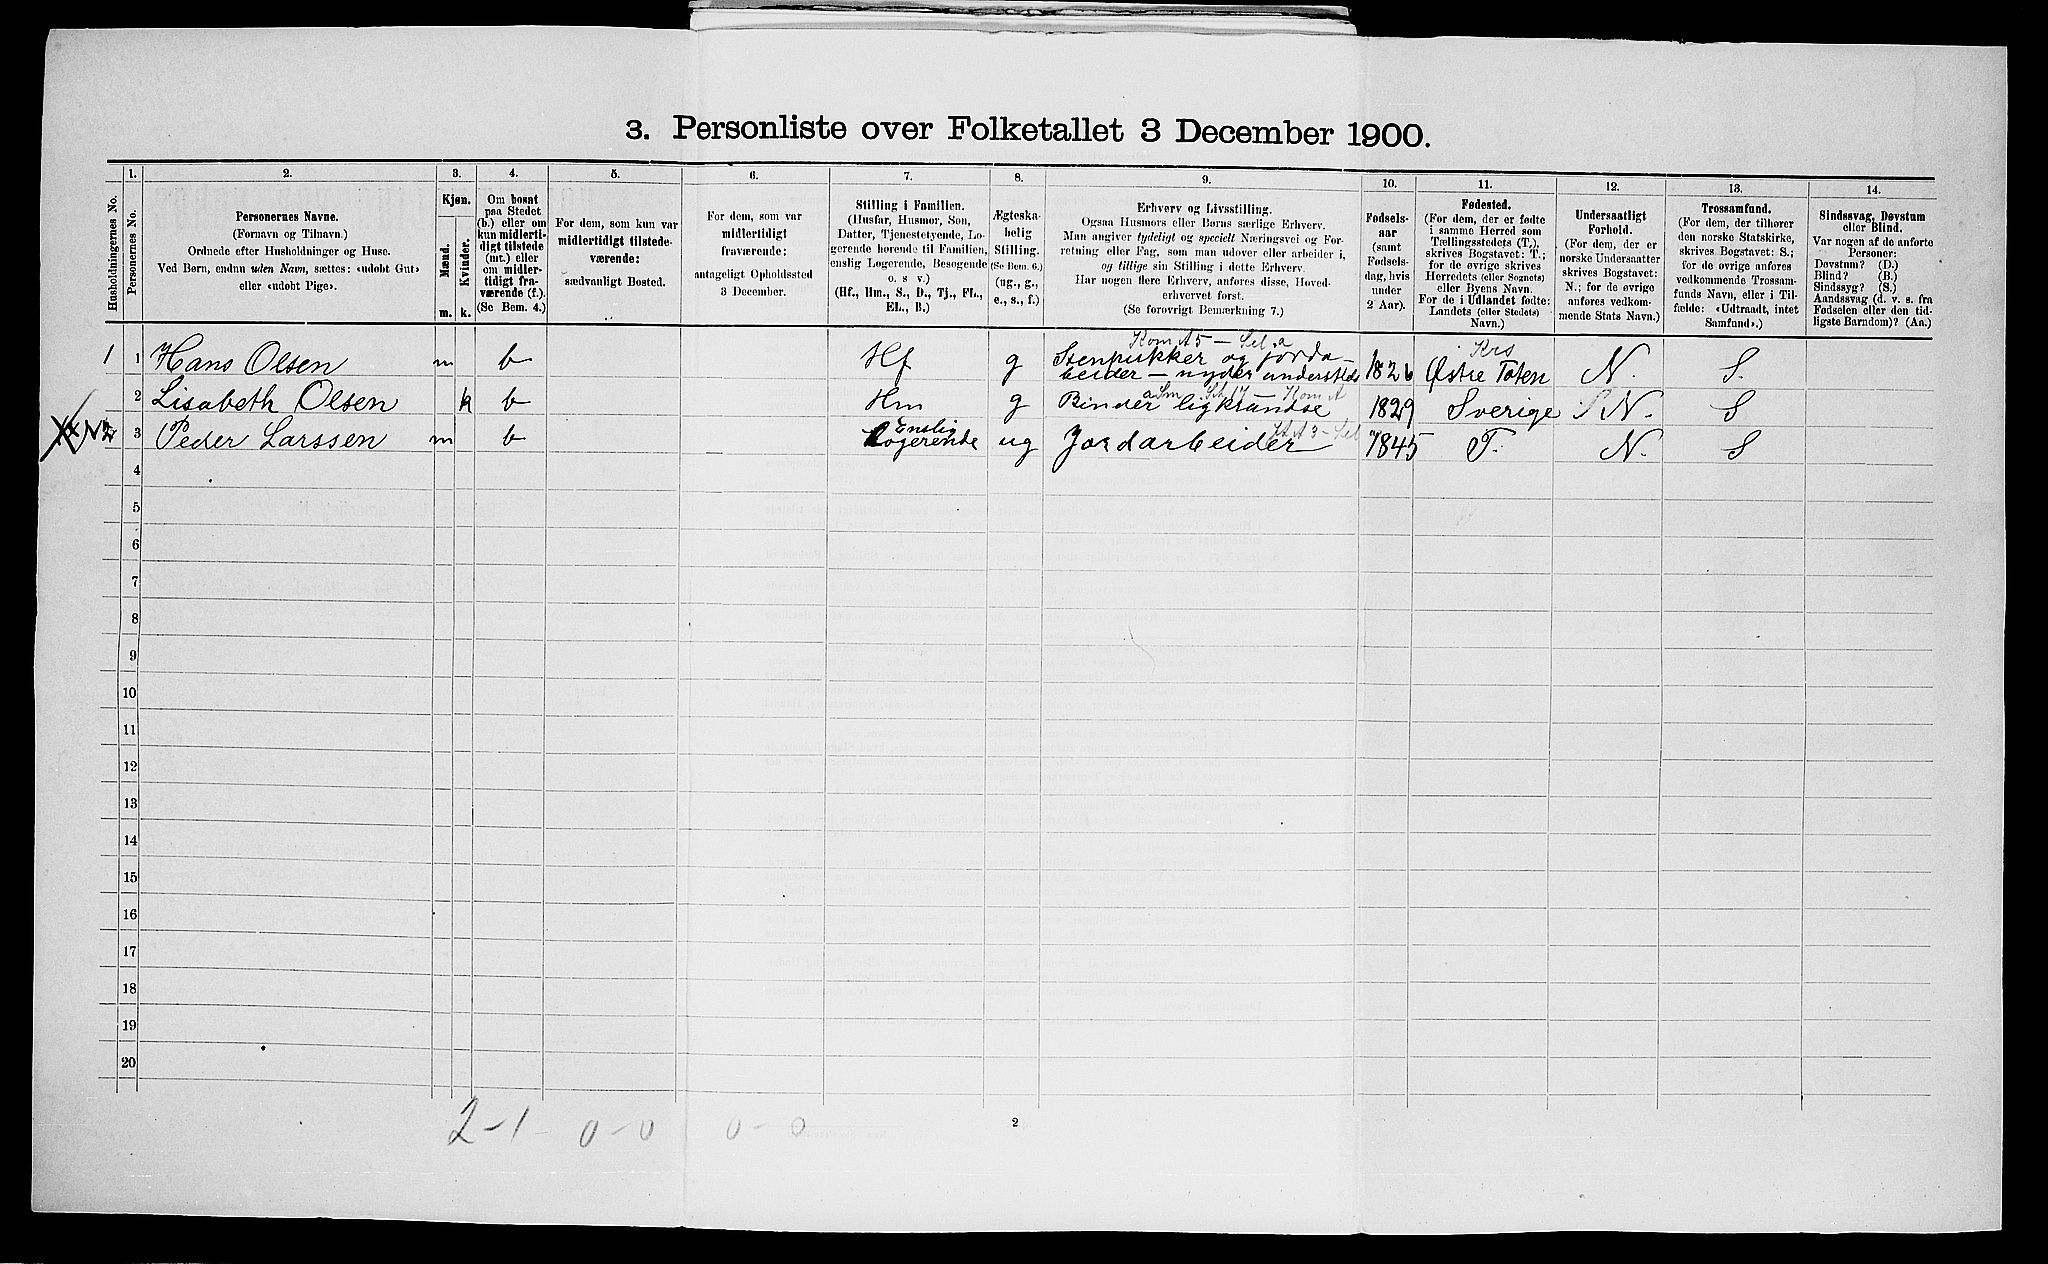 3. Personliste over Folketallet 3 December 1900.
Husholdningernes No.
1.
Personernes No.
2.
Personernes Navne.
(Fornavn og Tilnavn.)
Ordnede efter Husholdninger og Huse.
Ved Børn, endnu uden Navn, sættes: «udøbt Gut»
eller «udøbt Pige».
3.
Kjøn.
Mænd.
Kvinder.
m.
k.
4.
Om bosat
paa Stedet
(b.) eller om
kun midlerti-
digt tilstede
(mt.) eller
om midler-
tidigt fra-
værende (f.).
(Se Bem. 4.)
5.
For dem, som kun var
midlertidigt tilstede-
værende:
sædvanligt Bosted.
6.
For dem, som var
midlertidigt
fraværende:
antageligt Opholdssted
3 December.
7.
Stilling i Familien.
(Husfar, Husmor, Søn,
Datter, Tjenestetyende, Lo-
gerende hørende til Familien,
enslig Logerende, Besøgende
o. s v.)
(Hf., Hm., S., D., Tj., FL.,
EL., B.)
8.
Ægteska-
belig
Stilling.
(Se Bem. 6.)
(ug., g.,
e., s., f.)
9.
Erhverv og Livsstilling.
Ogsaa Husmors eller Børns særlige Erhverv.
Man angiver tydeligt og specielt Næringsvei og For-
retning eller Fag, som man udøver eller arbeider i,
og tillige sin Stilling i dette Erhverv.
Har nogen flere Erhverv, anføres disse, Hoved-
erhvervet først.
(Se forøvrigt Bemærkning 7.)
10.
Fødsels-
aar
(samt
Fødsels-
dag, hvis
under
2 Aar).
11.
Fødested.
(For dem, der er fødte
i samme Herred som
Tællingsstedets (T.),
skrives Bogstavet: T.;
for de øvrige skrives
Herredets (eller Sognets)
eller Byens Navn.
For de i Udlandet fødte:
Landets (eller Stedets)
Navn.)
12.
Undersaatligt
Forhold.
(For dem, der er
norske Undersaatter
skrives Bogstavet:
N.; for de øvrige
anføres vedkom-
mende Stats Navn.)
13.
Trossamfund.
(For dem, der tilhører
den norske Statskirke,
skrives Bogstavet: S.;
for de øvrige anføres
vedkommende Trossam-
funds Navn, eller i Til-
fælde: «Udtraadt, intet
Samfund».)
14.
Sindssvag, Døvstum
eller Blind.
Var nogen af de anførte
Personer:
Døvstum? (D.)
Blind? (B.)
Sindssyg? (S.)
Aandssvag (d. v. s. fra
Fødselen eller den tid-
ligste Barndom)? (Aa.)
1 1 Hans Olsen m b Hf g Stenpukker og jorda- 1826 Østre Toten N. S.
Kom A5 – Sel a Krs
beider – nyder understøds
2 Lisabeth Olsen k b Hm g Binder ligkrandse 1829 Sverige N. S
Kom A
2 3 Peder Larssen m b Enslig Logerende ug Jordarbeider 1845 T. N. S
4
5
6
7
8
9
10
11
12
13
14
15
16
17
18
19
20
2-1- 0-0 0-0
2